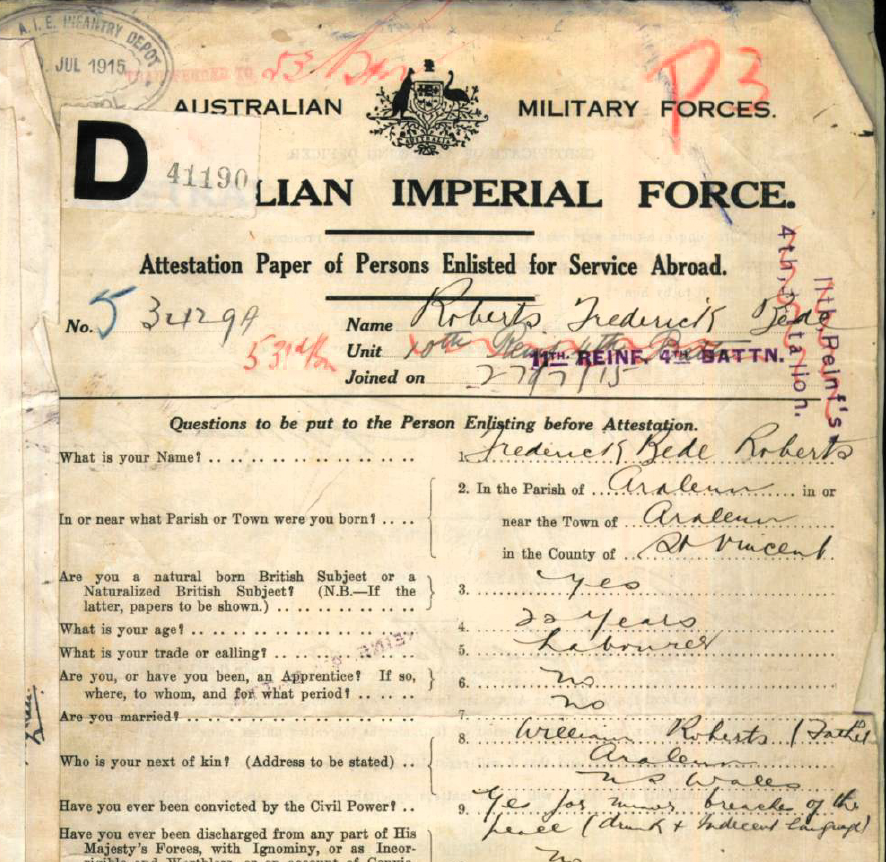 A.I.F. INFANTRY DEPOT
JUL 1915
TRANSFERRED TO 53 Btn
P3
AUSTRALIAN MILITARY FORCES.
AUSTRALIA
D
41190
LIAN IMPERIAL FORCE.
Attestation Paper of Persons Enlisted for Service Abroad.
No. 3429A
Name Roberts Frederick Bede
53rd Bn
Unit 10th Reinf 4th
11TH REINF. 4TH BATTN.
Joined on 27/7/15
11th, Reinf's
4th, Battalion.
Questions to be put to the Person Enlisting before Attestation.
What is your Name? .. 1. Frederick Bede Roberts
In or near what Parish or Town were you born? .. 2. In the Parish of Araluen in or
near the Town of Araluen
in the County of St Vincent
Are you a natural born British Subject or a
Naturalized British Subject? (N.B.—If the 3. Yes
latter, papers to be shown.) ..
What is your age? .. 4. 22 years
What is your trade or calling? .. 5. Labourer
Are you, or have you been, an Apprentice? If so,
where, to whom, and for what period? .. 6. No
Are you married? .. 7. No
8. William Roberts (Father
Who is your next of kin? (Address to be stated) .. Araluen
N S Wales
Have you ever been convicted by the Civil Power? .. 9. Yes for minor breaches of the
peace (drunk & Indecent Language)
Have you ever been discharged from any part of His
Majesty's Forces, with Ignominy, or as Incor-
no